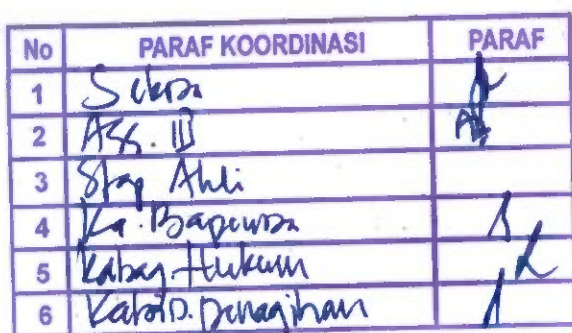 No PARAF KOORDINASI PARAF
1 Sekda
2 Ass. III
3 Staf Ahli
4 Ka. Bapenda
5 Kabag Hukum
6 Kabid. penagihan